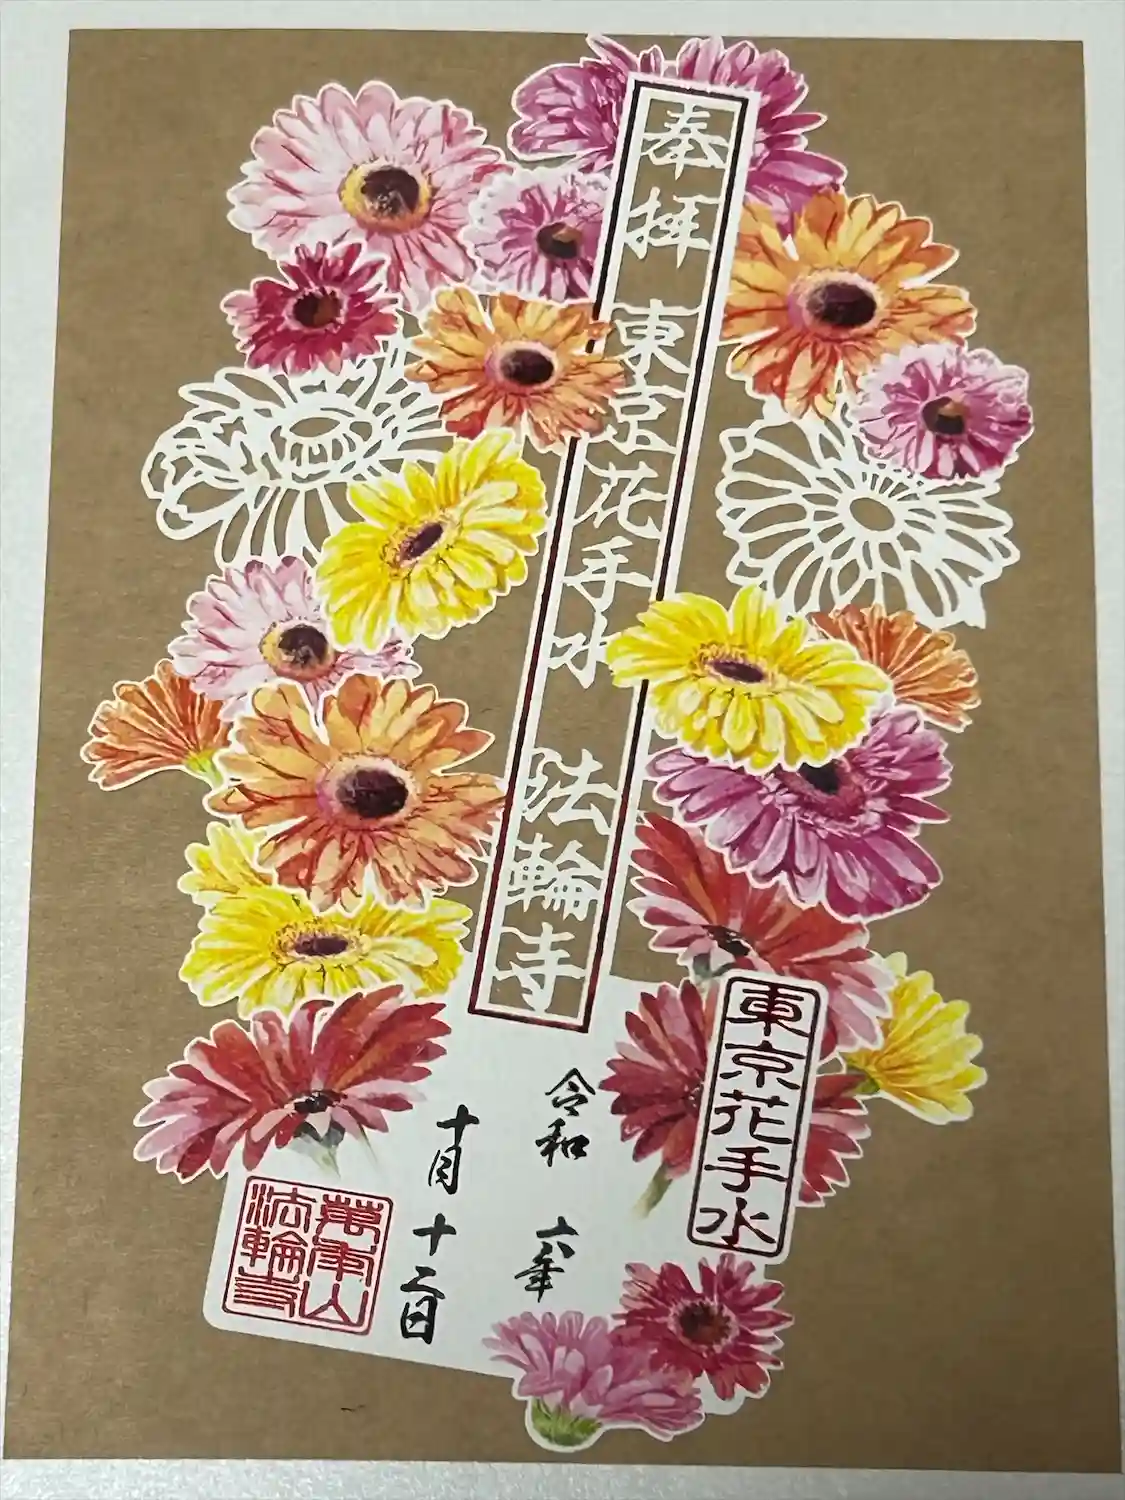 奉拝 東京花手水 法輪寺
東京花手水
令和 六年
十月 十二日
萬年山
法輪寺